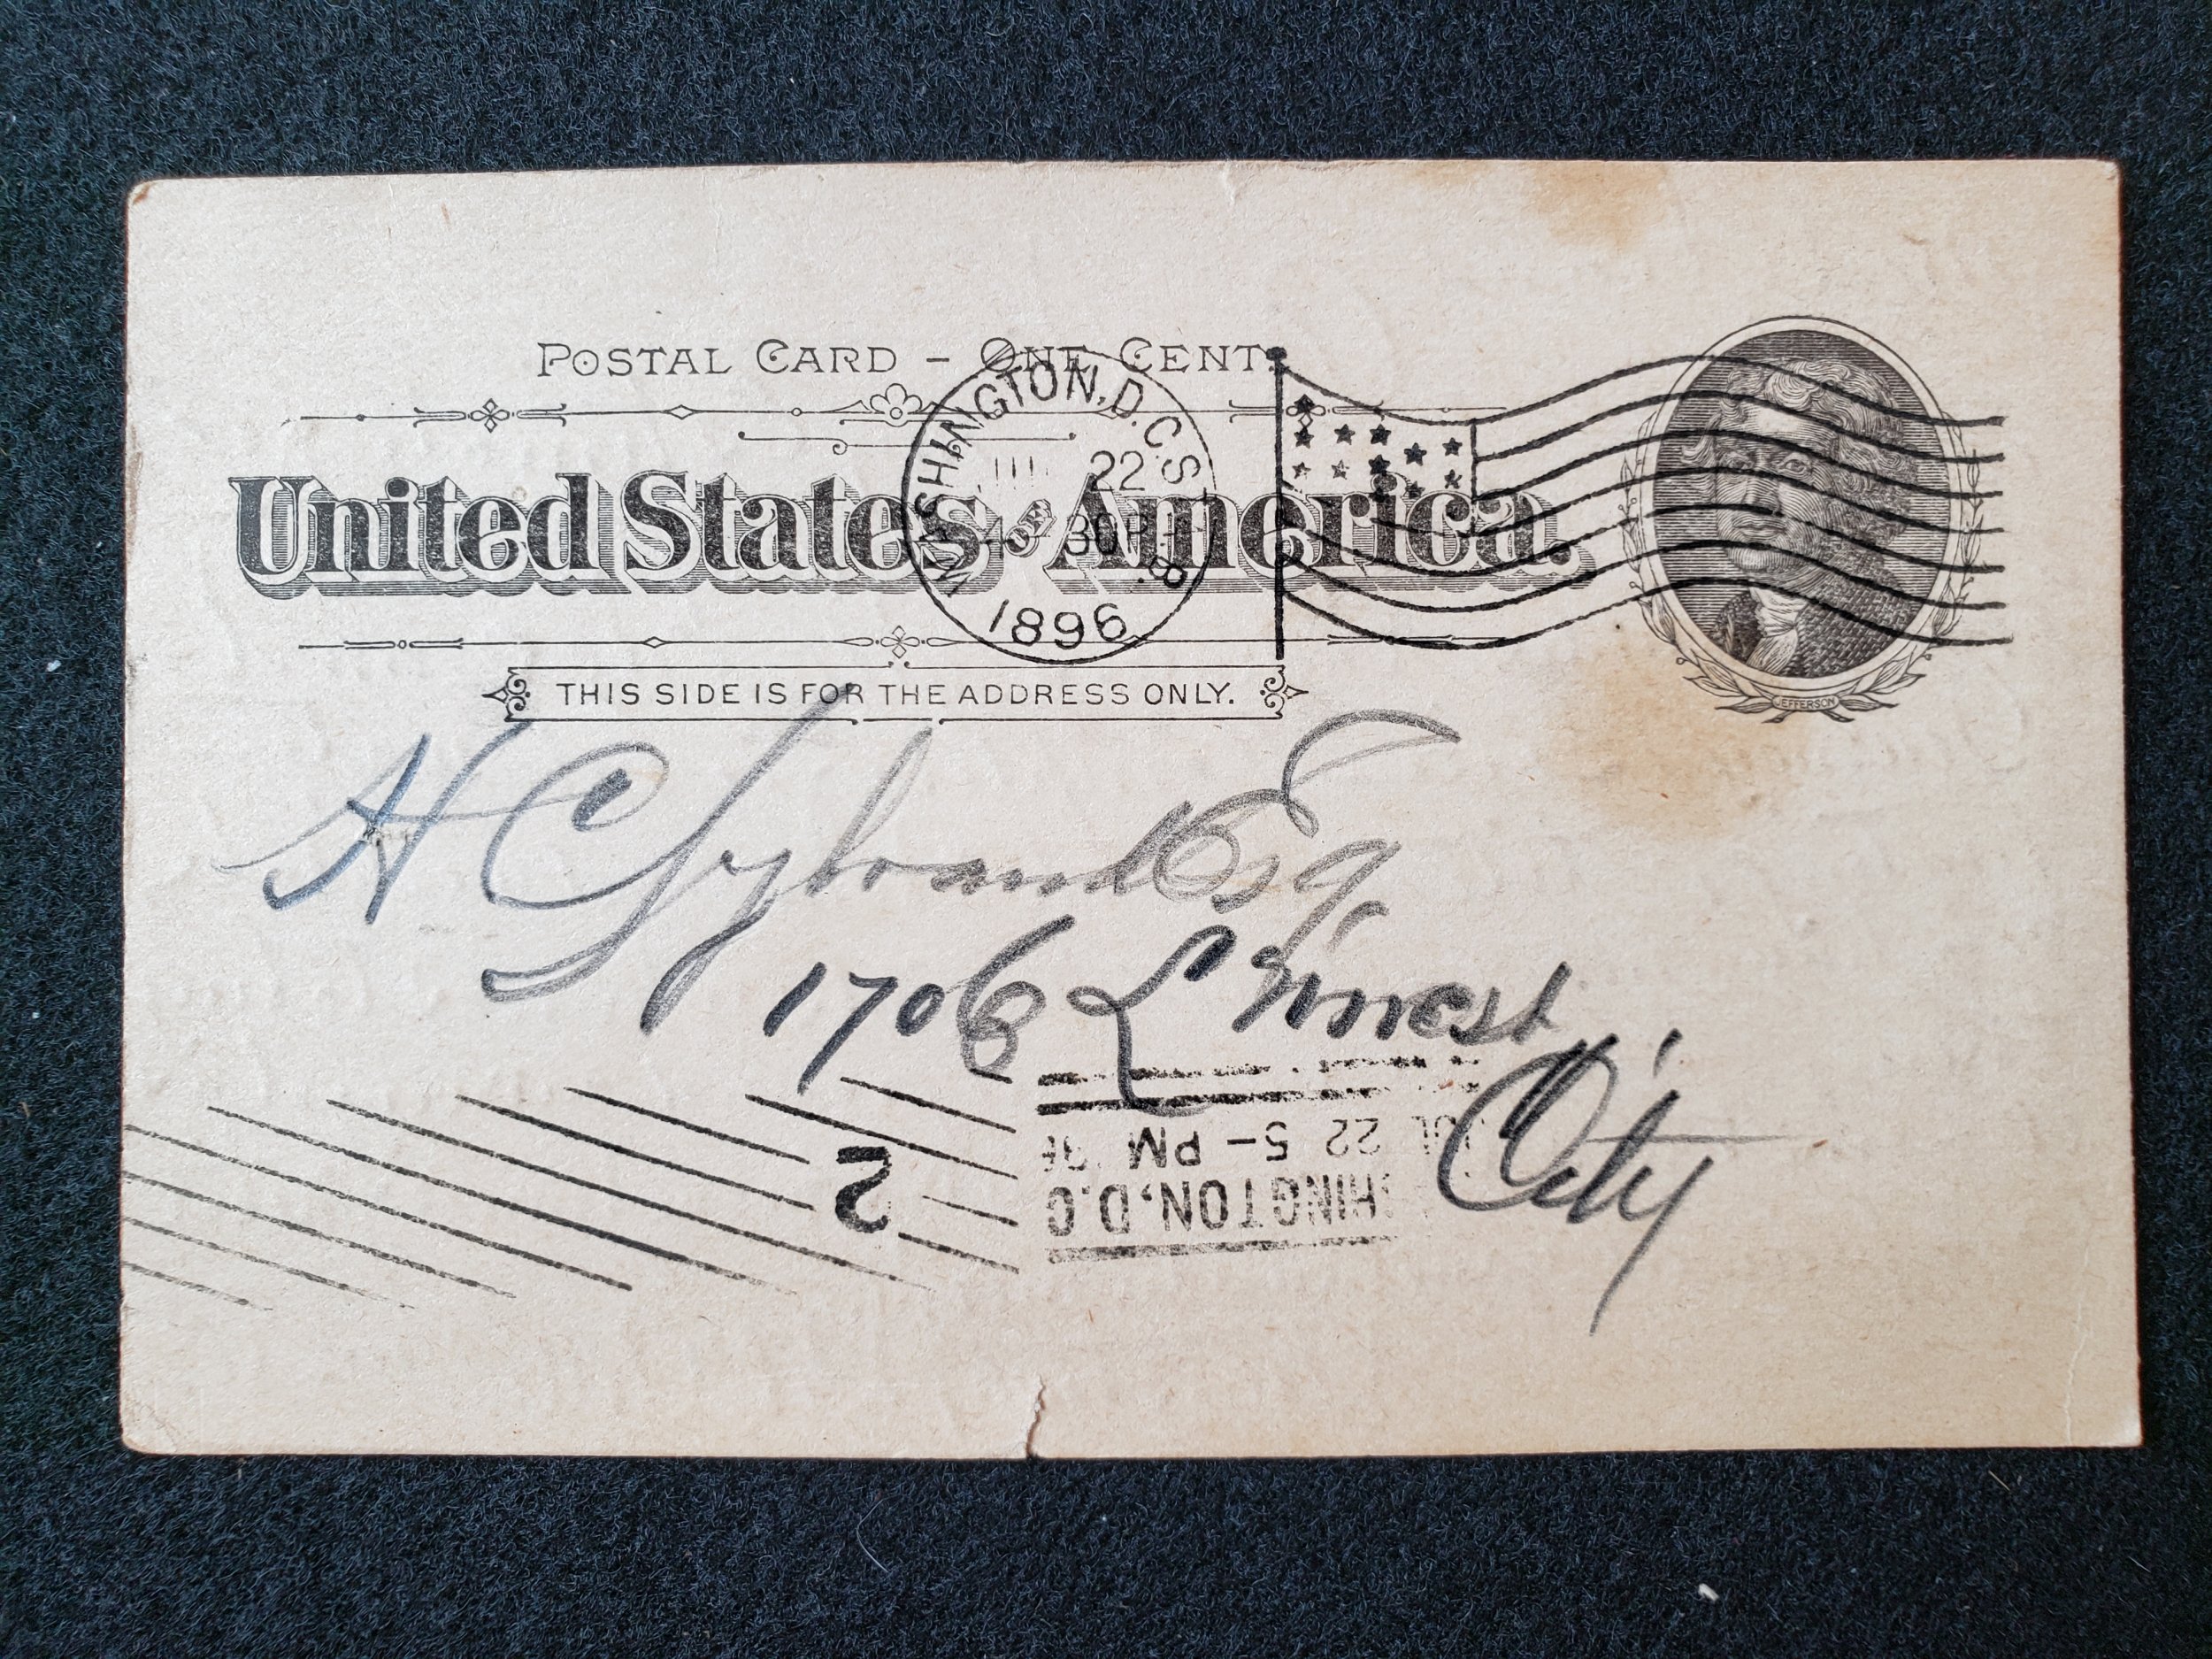 POSTAL CARD – ONE CENT.
United States of America.
WASHINGTON, D.C. STA. B.
22
30 P
1896
THIS SIDE IS FOR THE ADDRESS ONLY.
JEFFERSON
H C
Esq
1706 L St
City
2
JUL 22 5- PM '96
WASHINGTON, D.C